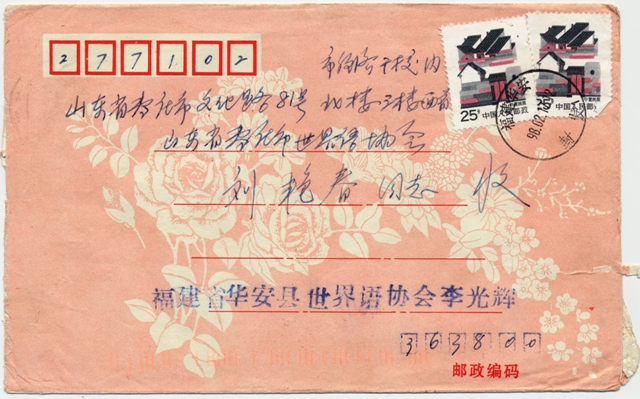 277102
市街商干校内
山东省枣庄市文化路81号 北楼三楼西首
山东省枣庄市世界语协会
刘艳春同志 收
25分
中国人民邮政
中国人民邮政
福建 华安
98.02.
福建省华安县世界语协会李光辉
363800
邮政编码